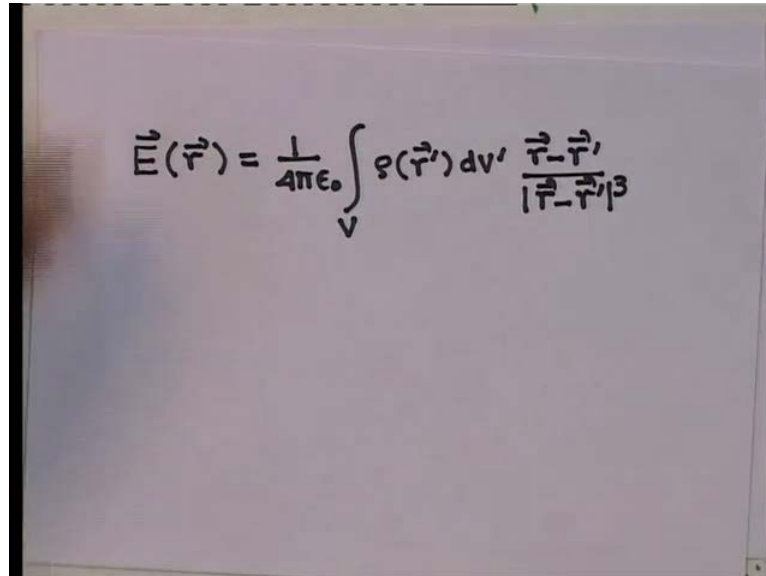 $\vec{E}(\vec{r}) = \frac{1}{4\pi\epsilon_0} \int_V \rho(\vec{r}') dv' \frac{\vec{r}-\vec{r}'}{|\vec{r}-\vec{r}'|^3}$